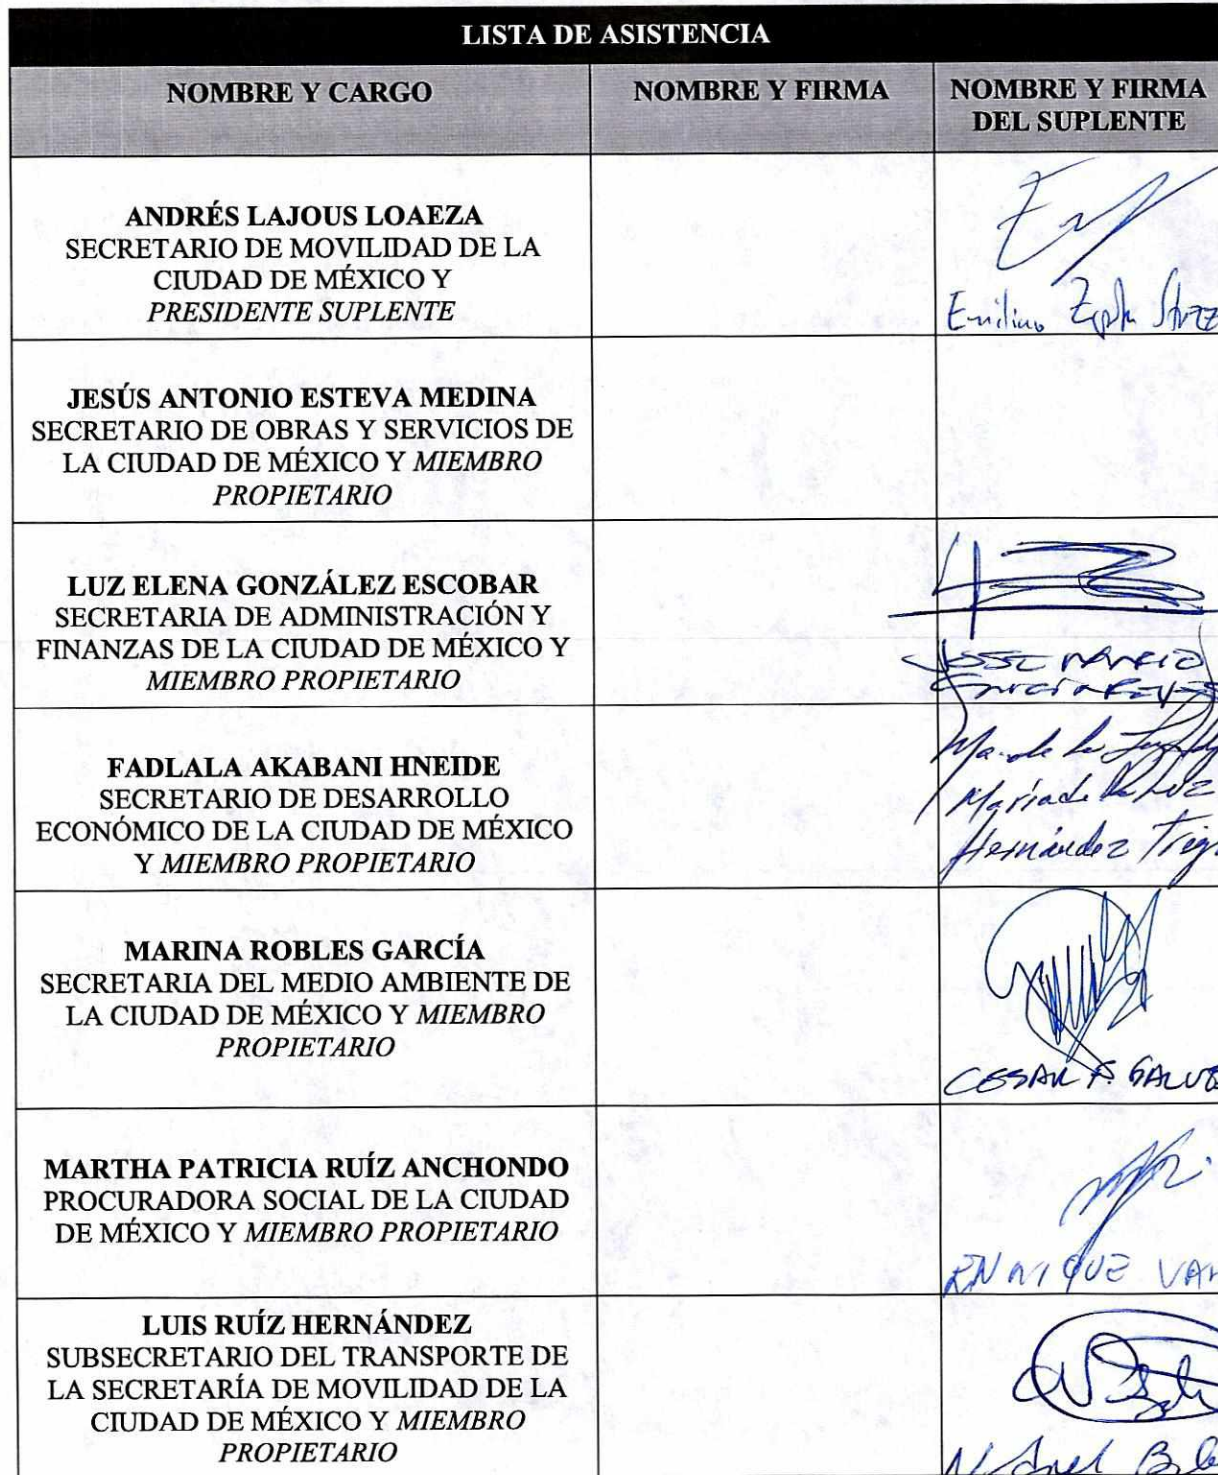 LISTA DE ASISTENCIA
NOMBRE Y CARGO
NOMBRE Y FIRMA
NOMBRE Y FIRMA
DEL SUPLENTE
ANDRÉS LAJOUS LOAEZA
SECRETARIO DE MOVILIDAD DE LA
CIUDAD DE MÉXICO Y
PRESIDENTE SUPLENTE
JESÚS ANTONIO ESTEVA MEDINA
SECRETARIO DE OBRAS Y SERVICIOS DE
LA CIUDAD DE MÉXICO Y MIEMBRO
PROPIETARIO
LUZ ELENA GONZÁLEZ ESCOBAR
SECRETARIA DE ADMINISTRACIÓN Y
FINANZAS DE LA CIUDAD DE MÉXICO Y
MIEMBRO PROPIETARIO
JOSE
FADLALA AKABANI HNEIDE
SECRETARIO DE DESARROLLO
ECONÓMICO DE LA CIUDAD DE MÉXICO
Y MIEMBRO PROPIETARIO
María de la Luz
Hernández
MARINA ROBLES GARCÍA
SECRETARIA DEL MEDIO AMBIENTE DE
LA CIUDAD DE MÉXICO Y MIEMBRO
PROPIETARIO
CESAR
MARTHA PATRICIA RUÍZ ANCHONDO
PROCURADORA SOCIAL DE LA CIUDAD
DE MÉXICO Y MIEMBRO PROPIETARIO
ENRIQUE
LUIS RUÍZ HERNÁNDEZ
SUBSECRETARIO DEL TRANSPORTE DE
LA SECRETARÍA DE MOVILIDAD DE LA
CIUDAD DE MÉXICO Y MIEMBRO
PROPIETARIO